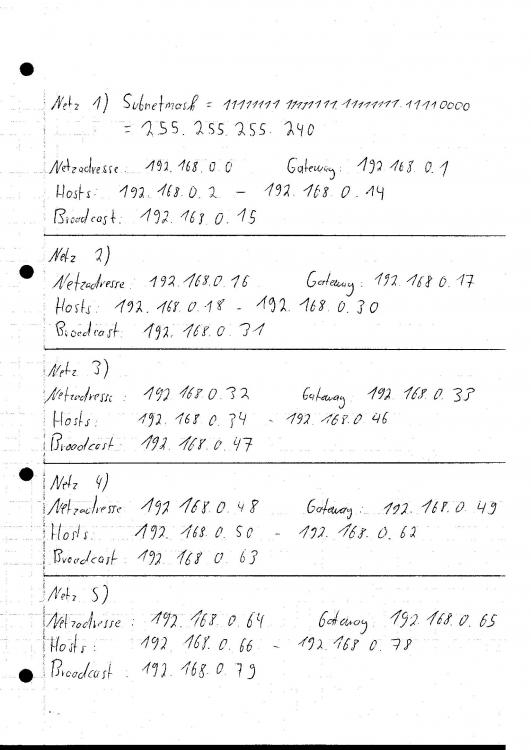 Netz 1) Subnetmask = 11111111 11111111 11111111.11110000
= 255. 255. 255. 240
Netzadresse: 192.168.0.0 Gateway: 192.168.0.1
Hosts: 192.168.0.2 - 192.168.0.14
Broadcast: 192.168.0.15
Netz 2)
Netzadresse: 192.168.0.16 Gateway: 192.168.0.17
Hosts: 192.168.0.18 - 192.168.0.30
Broadcast: 192.168.0.31
Netz 3)
Netzadresse: 192 168 0.32 Gateway: 192.168.0.33
Hosts: 192.168.0.34 - 192.168.0.46
Broadcast: 192.168.0.47
Netz 4)
Netzadresse 192 168.0.48 Gateway: 192.168.0.49
Hosts 192.168.0.50 - 192.168.0.62
Broadcast: 192.168.0.63
Netz 5)
Netzadresse: 192.168.0.64 Gateway: 192.168.0.65
Hosts: 192.168.0.66 - 192.168.0.78
Broadcast: 192.168.0.79